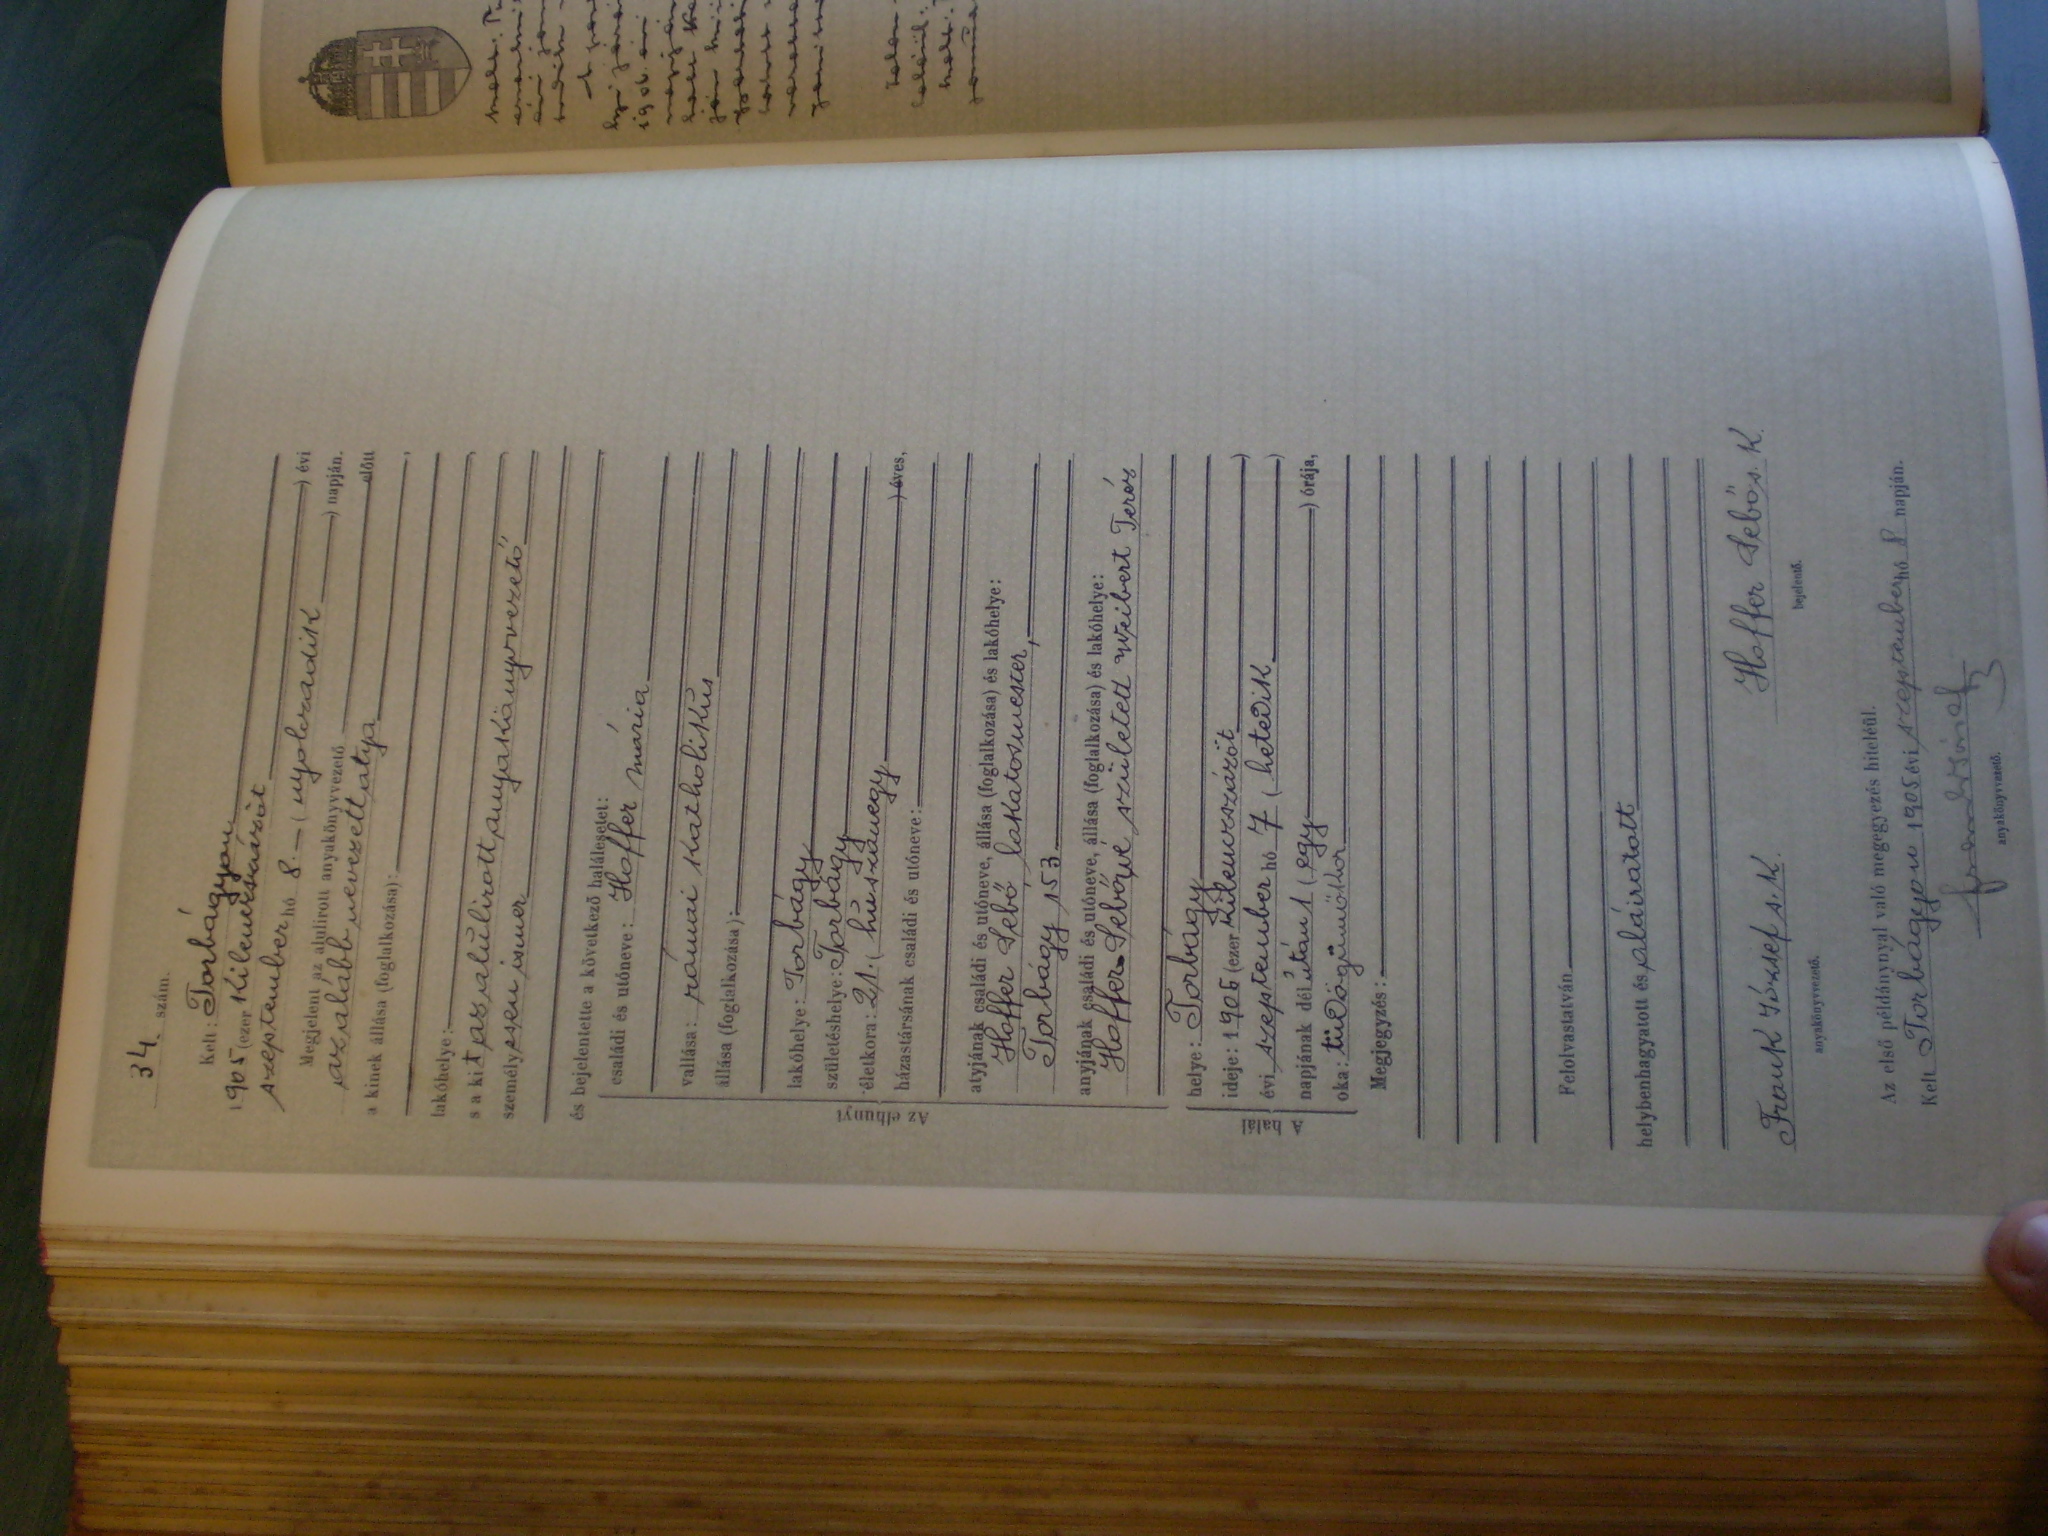 34. szám.
Kelt: Torbágyon
1905 (ezer kilencszázöt
szeptember hó 8. — ( nyolczadik ) évi
) napján.
Megjelent az alulirott anyakönyvvezető előtt
az alább nevezett atya
a kinek állása (foglalkozása):
lakóhelye:
s a kit az alulirott anyakönyvvezető
személyesen ismer
és bejelentette a következő halálesetet:
Az elhunyt
családi és utóneve: Hoffer mária
vallása: római katholikus
állása (foglalkozása):
lakóhelye: Torbágy
születéshelye: Torbágy
életkora: 21. ( huszonegy ) éves,
házastársának családi és utóneve:
atyjának családi és utóneve, állása (foglalkozása) és lakóhelye:
Hoffer Sebő, lakatosmester,
Torbágy 153
anyjának családi és utóneve, állása (foglalkozása) és lakóhelye:
Hoffer Sebőné született Weibert Teréz
A halál
helye: Torbágy
ideje: 1905 (ezer kilencszázöt )
évi szeptember hó 7 ( hetedik )
napjának dél után 1 ( egy ) órája,
oka: tüdőgümőkór
Megjegyzés:
Felolvastatván
helybenhagyatott és aláiratott
Frank József s. k.
anyakönyvvezető.
Hoffer Sebő s. k.
bejelentő.
Az első példánynyal való megegyezés hiteléül.
Kelt Torbágyon 1905 évi szeptember hó 8 napján.
Frank József
anyakönyvvezető.